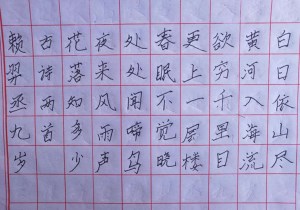 白日依山尽
黄河入海流
欲穷千里目
更上一层楼
春眠不觉晓
处处闻啼鸟
夜来风雨声
花落知多少
古诗两首
赖羿丞九岁